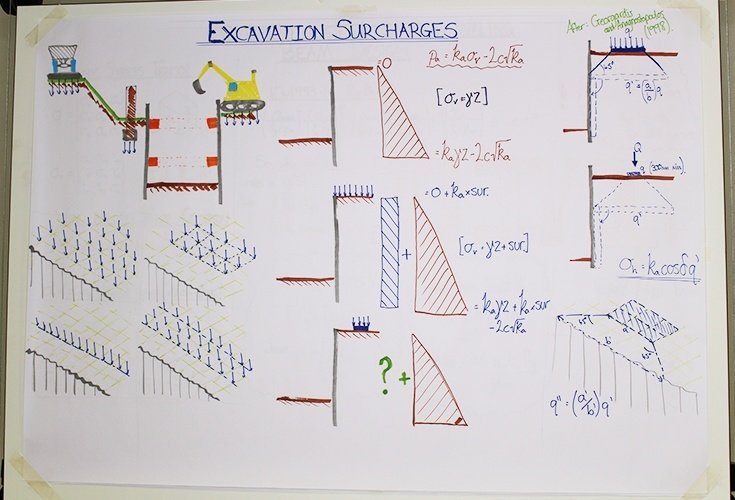 EXCAVATION SURCHARGES
After: Georgiadis
and Anagnostopoulos
(1998).
=0
Pa = kaσv - 2c√ka
[σv = γz]
= kaγz - 2c√ka
= 0 + ka × sur.
+
[σv = γz + sur]
= kaγz + ka × sur
- 2c√ka
? +
q
45°
q' = (a/b) q
Q
q (300mm min)
q'
σh = ka cosδ q'
45°
a'
b'
45°
q'' = (a'/b') q'